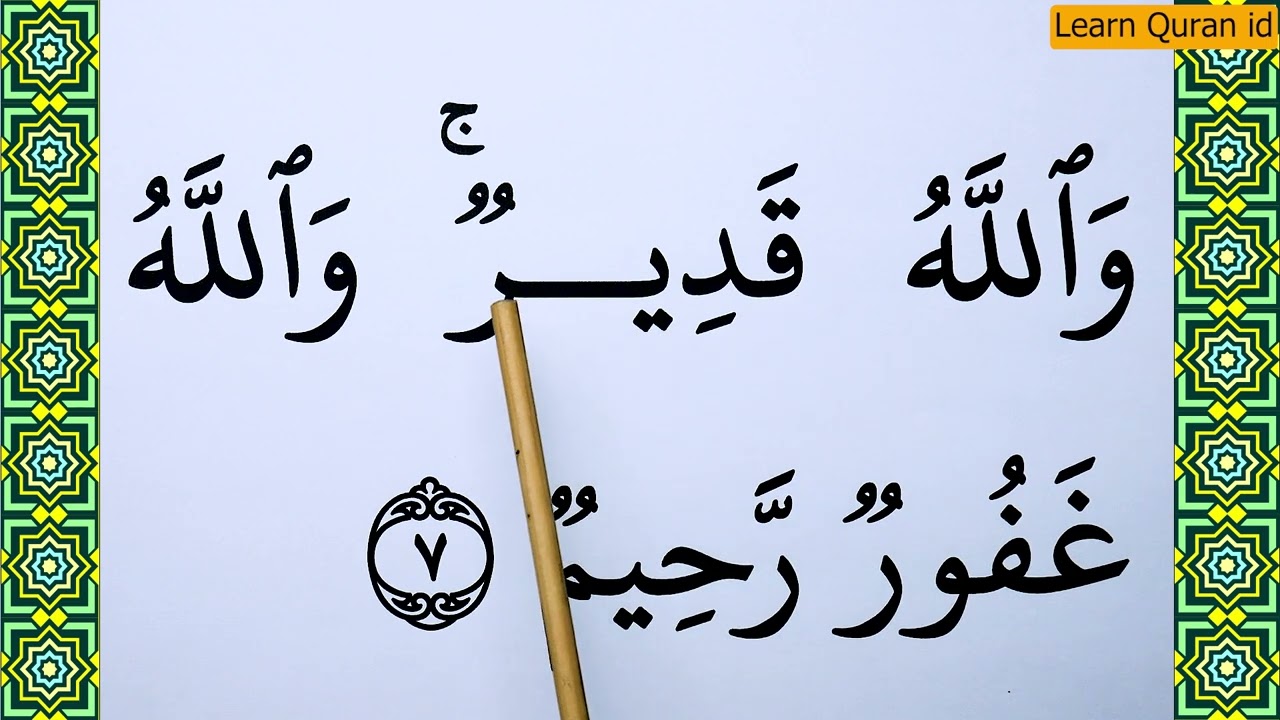 Learn Quran id
وَٱللَّهُ قَدِيرٌۚ وَٱللَّهُ
غَفُورٌ رَّحِيمٌ ٧